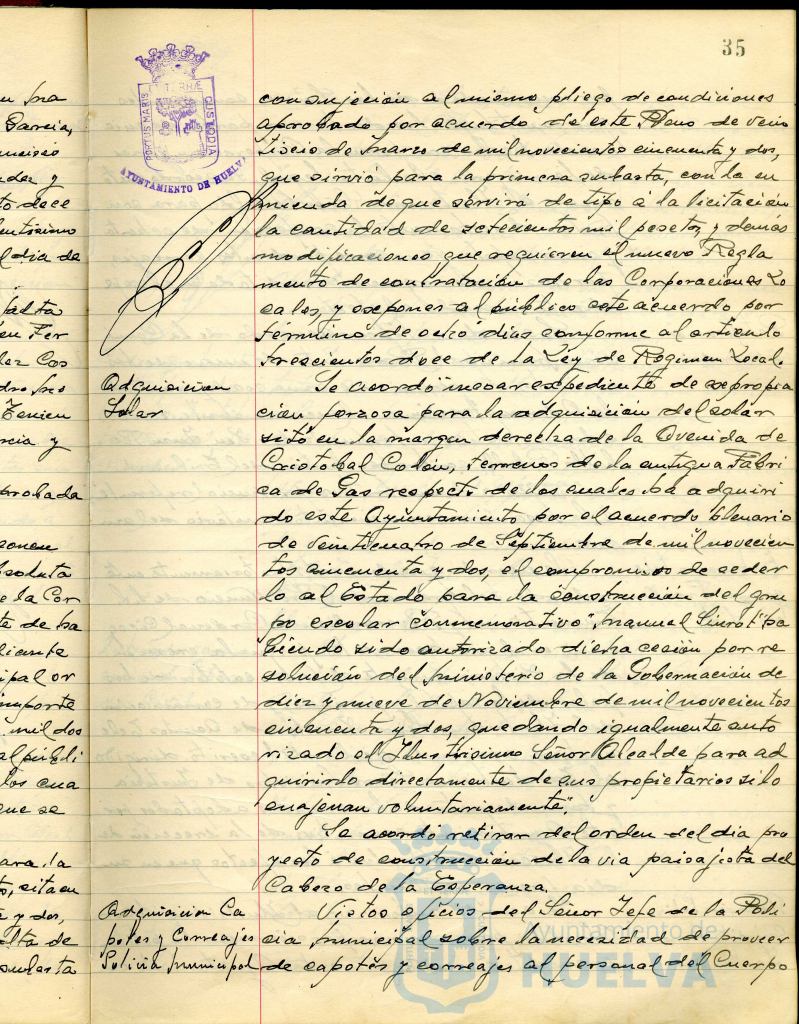 35
PORTUS MARIS ET TERRÆ CUSTODIA
AYUNTAMIENTO DE HUELVA
con sujeción al mismo pliego de condiciones
aprobado por acuerdo de este Pleno de vein
tiseis de marzo de mil novecientos cincuenta y dos,
que sirvió para la primera subasta, con la en
mienda de que servirá de tipo á la licitación
la cantidad de setecientas mil pesetas y demás
modificaciones que requieren el nuevo Regla
mento de contratación de las Corporaciones Lo
cales, y exponer al público este acuerdo por
término de ocho días conforme al articulo
trescientos doce de la Ley de Regimen Local.
Adquisición
Solar
Se acordó "incoar expediente de expropia
ción forzosa para la adquisición del solar
sito en la margen derecha de la Avenida de
Cristobal Colón, terrenos de la antigua Fábri
ca de Gas respecto de los cuales ha adquiri
do este Ayuntamiento por el acuerdo plenario
de veinticuatro de Septiembre de mil novecien
tos cincuenta y dos, el compromiso de ceder
lo al Estado para la construcción del gru
po escolar conmemorativo "Manuel Siurot" ha
biendo sido autorizado dicha cesión por re
solución del Ministerio de la Gobernación de
diez y nueve de Noviembre de mil novecientos
cincuenta y dos, quedando igualmente auto
rizado el Ilustrisimo Señor Alcalde para ad
quirirlo directamente de sus propietarios si lo
enajenan voluntariamente".
Se acordo retirar del orden del dia pro
yecto de construcción de la via paisajista del
Cabezo de la Esperanza.
Adquisicion Ca
potes y Correajes
Policia Municipal
Vistos oficios del Señor Jefe de la Poli
cia Municipal sobre la necesidad de proveer
de capotes y correajes al personal del Cuerpo
Ayuntamiento de
HUELVA